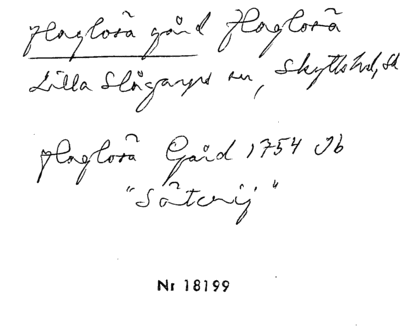 Haglösa gård Haglösa
Lilla Slågarps sn, Skytts hd, Sk
Haglösa Gård 1754 Jb
"Säterij"
Nr 18199